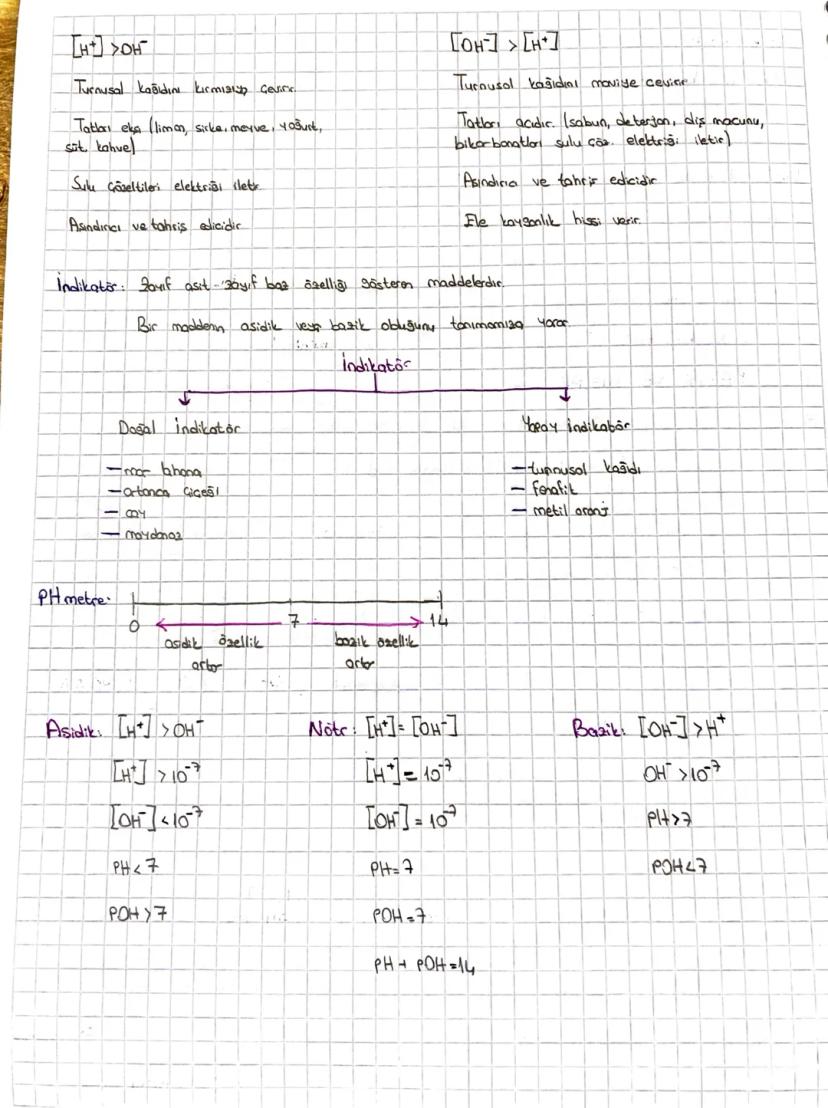 [H⁺] > OH⁻
Turnusol kağıdını kırmızıya çevirir.
Tatları ekşi (limon, sirke, meyve, yoğurt,
süt, kahve)
Sulu çözeltileri elektriği iletir
Aşındırıcı ve tahriş edicidir
[OH⁻] > [H⁺]
Turnusol kağıdını maviye çevirir
Tatları acıdır. (sabun, deterjan, diş macunu,
bikarbonatları sulu çöz. elektriği iletir)
Aşındırıcı ve tahriş edicidir
Ele kayganlık hissi verir.
İndikatör: Zayıf asit - zayıf baz özelliği gösteren maddelerdir.
Bir maddenin asidik veya bazik olduğunu tanımamıza yarar.
İndikatör
Doğal indikatör
— mor lahana
— ortanca çiçeği
— çay
— maydanoz
Yapay indikatör
— turnusol kağıdı
— fenolfit
— metil oranj
PH metre:
0 7 14
asidik özellik
artar
bazik özellik
artar
Asidik: [H⁺] > OH⁻
[H⁺] > 10⁻⁷
[OH⁻] < 10⁻⁷
PH < 7
POH > 7
Nötr: [H⁺] = [OH⁻]
[H⁺] = 10⁻⁷
[OH⁻] = 10⁻⁷
PH = 7
POH = 7
PH + POH = 14
Bazik: [OH⁻] > H⁺
OH⁻ > 10⁻⁷
PH > 7
POH < 7